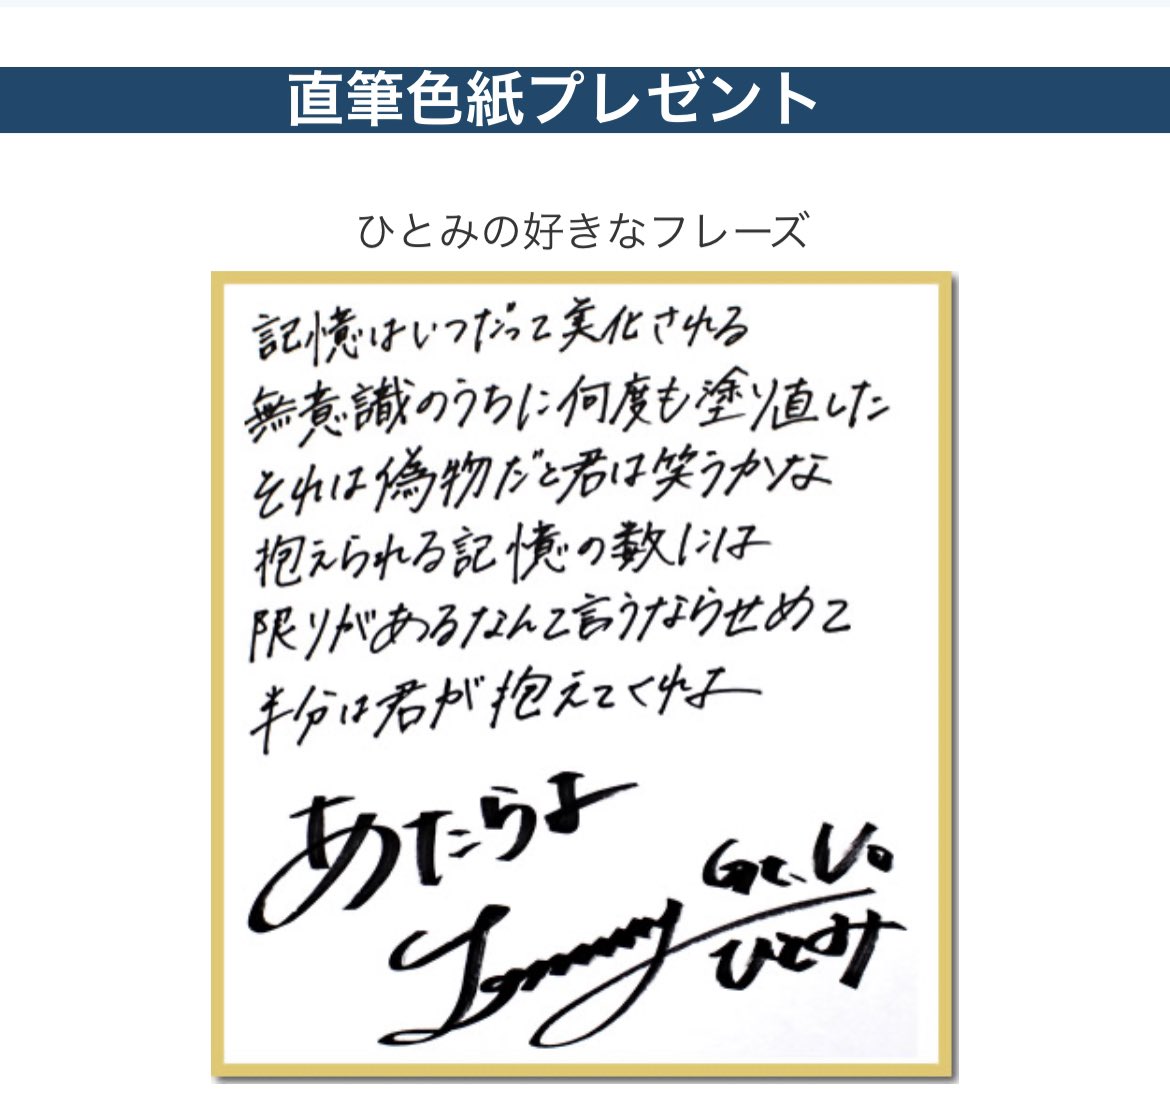 直筆色紙プレゼント
ひとみの好きなフレーズ
記憶はいつだって美化される
無意識のうちに何度も塗り直した
それは偽物だと君は笑うかな
抱えられる記憶の数には
限りがあるなんて言うならせめて
半分は君が抱えてくれよ
あたらよ
Gt. Vo.
ひとみ